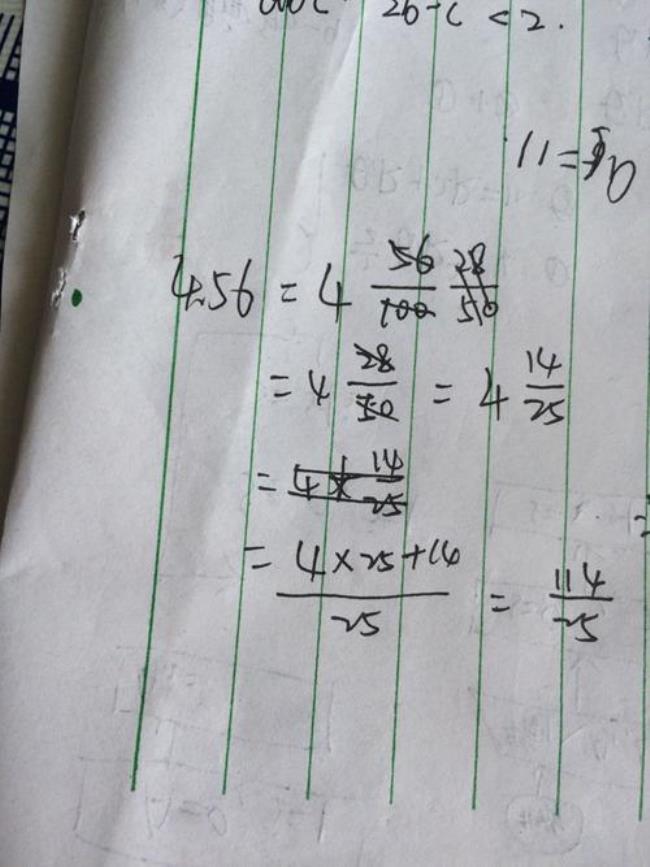 2b-c < 2.
=11.
4.56 = 4 56/100 28/50
= 4 28/50 = 4 14/25
= 4 × 14/25
= (4×25+14)/25 = 114/25